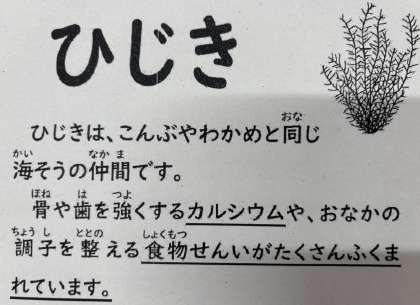 ひじき
ひじきは、こんぶやわかめと同じ
海そうの仲間です。
骨や歯を強くするカルシウムや、おなかの
調子を整える食物せんいがたくさんふくま
れています。